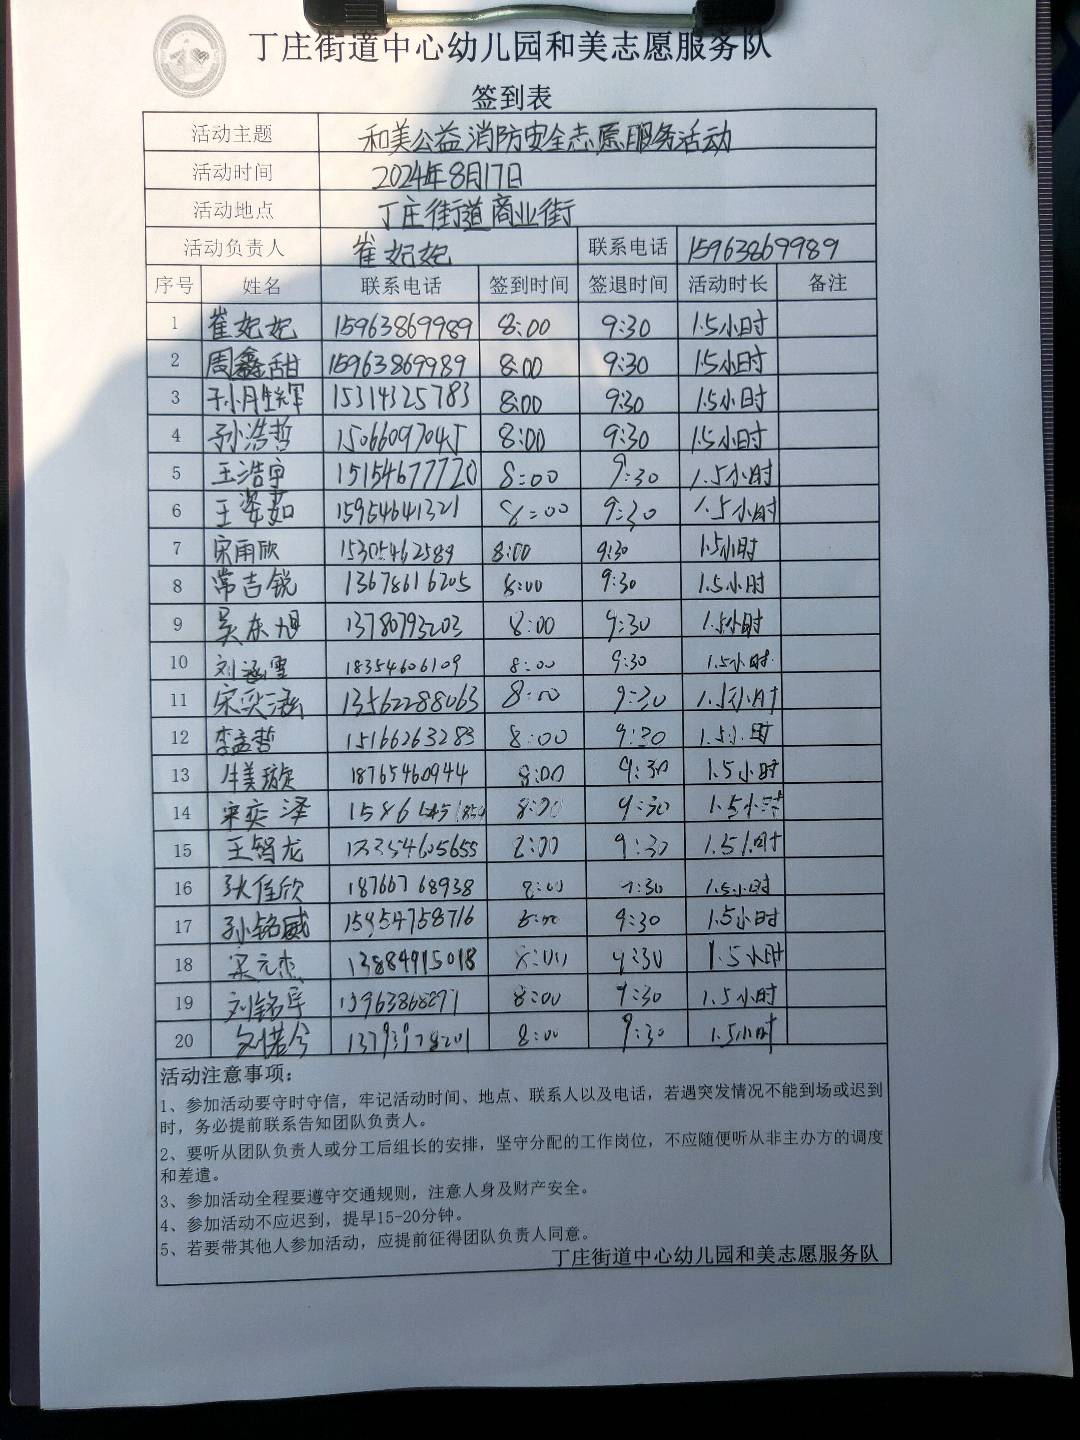 丁庄街道中心幼儿园和美志愿服务队
签到表
活动主题 和美公益消防安全志愿服务活动
活动时间 2024年8月17日
活动地点 丁庄街道商业街
活动负责人 崔妃妃 联系电话 15963869989
序号 姓名 联系电话 签到时间 签退时间 活动时长 备注
1 崔妃妃 15963869989 8:00 9:30 1.5小时
2 周鑫甜 15963869989 8:00 9:30 1.5小时
3 15314325783 8:00 9:30 1.5小时
4 孙浩哲 15066097045 8:00 9:30 1.5小时
5 王浩宇 15154677720 8:00 9:30 1.5小时
6 王姿茹 15954641321 8:00 9:30 1.5小时
7 宋雨欣 15305462589 8:00 9:30 1.5小时
8 常吉锐 13678616205 8:00 9:30 1.5小时
9 吴东旭 13780793203 8:00 9:30 1.5小时
10 刘涵雪 18354606109 8:00 9:30 1.5小时
11 宋奕涵 13562288063 8:00 9:30 1.5小时
12 李孟哲 15166263283 8:00 9:30 1.5小时
13 牛美璇 18765460944 8:00 9:30 1.5小时
14 宋奕泽 8:00 9:30 1.5小时
15 王智龙 8:00 9:30 1.5小时
16 张佳欣 18766768938 8:00 9:30 1.5小时
17 孙铭威 15954758716 8:00 9:30 1.5小时
18 宋元杰 13884915018 8:00 9:30 1.5小时
19 刘铭宇 8:00 9:30 1.5小时
20 8:00 9:30 1.5小时
活动注意事项：
1、参加活动要守时守信，牢记活动时间、地点、联系人以及电话，若遇突发情况不能到场或迟到
时，务必提前联系告知团队负责人。
2、要听从团队负责人或分工后组长的安排，坚守分配的工作岗位，不应随便听从非主办方的调度
和差遣。
3、参加活动全程要遵守交通规则，注意人身及财产安全。
4、参加活动不应迟到，提早15-20分钟。
5、若要带其他人参加活动，应提前征得团队负责人同意。
丁庄街道中心幼儿园和美志愿服务队